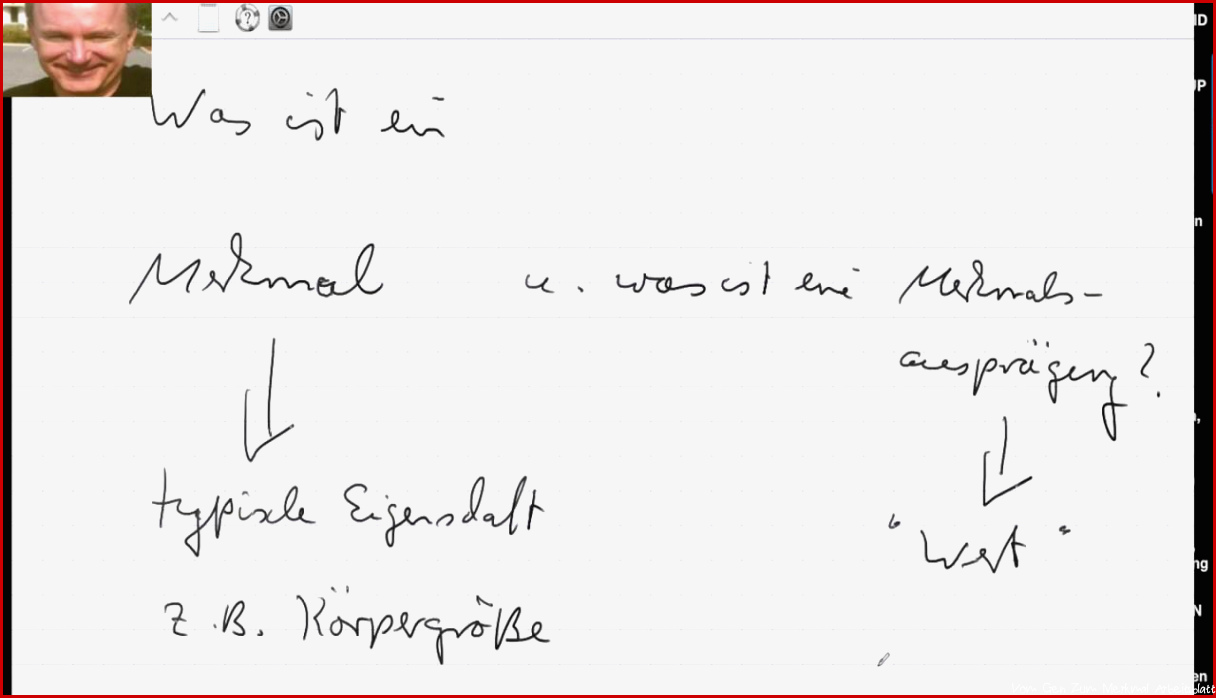 Was ist ein
Merkmal u. was ist eine Merkmals-
ausprägung?
typische Eigenschaft
"Wert"
z.B. Körpergröße